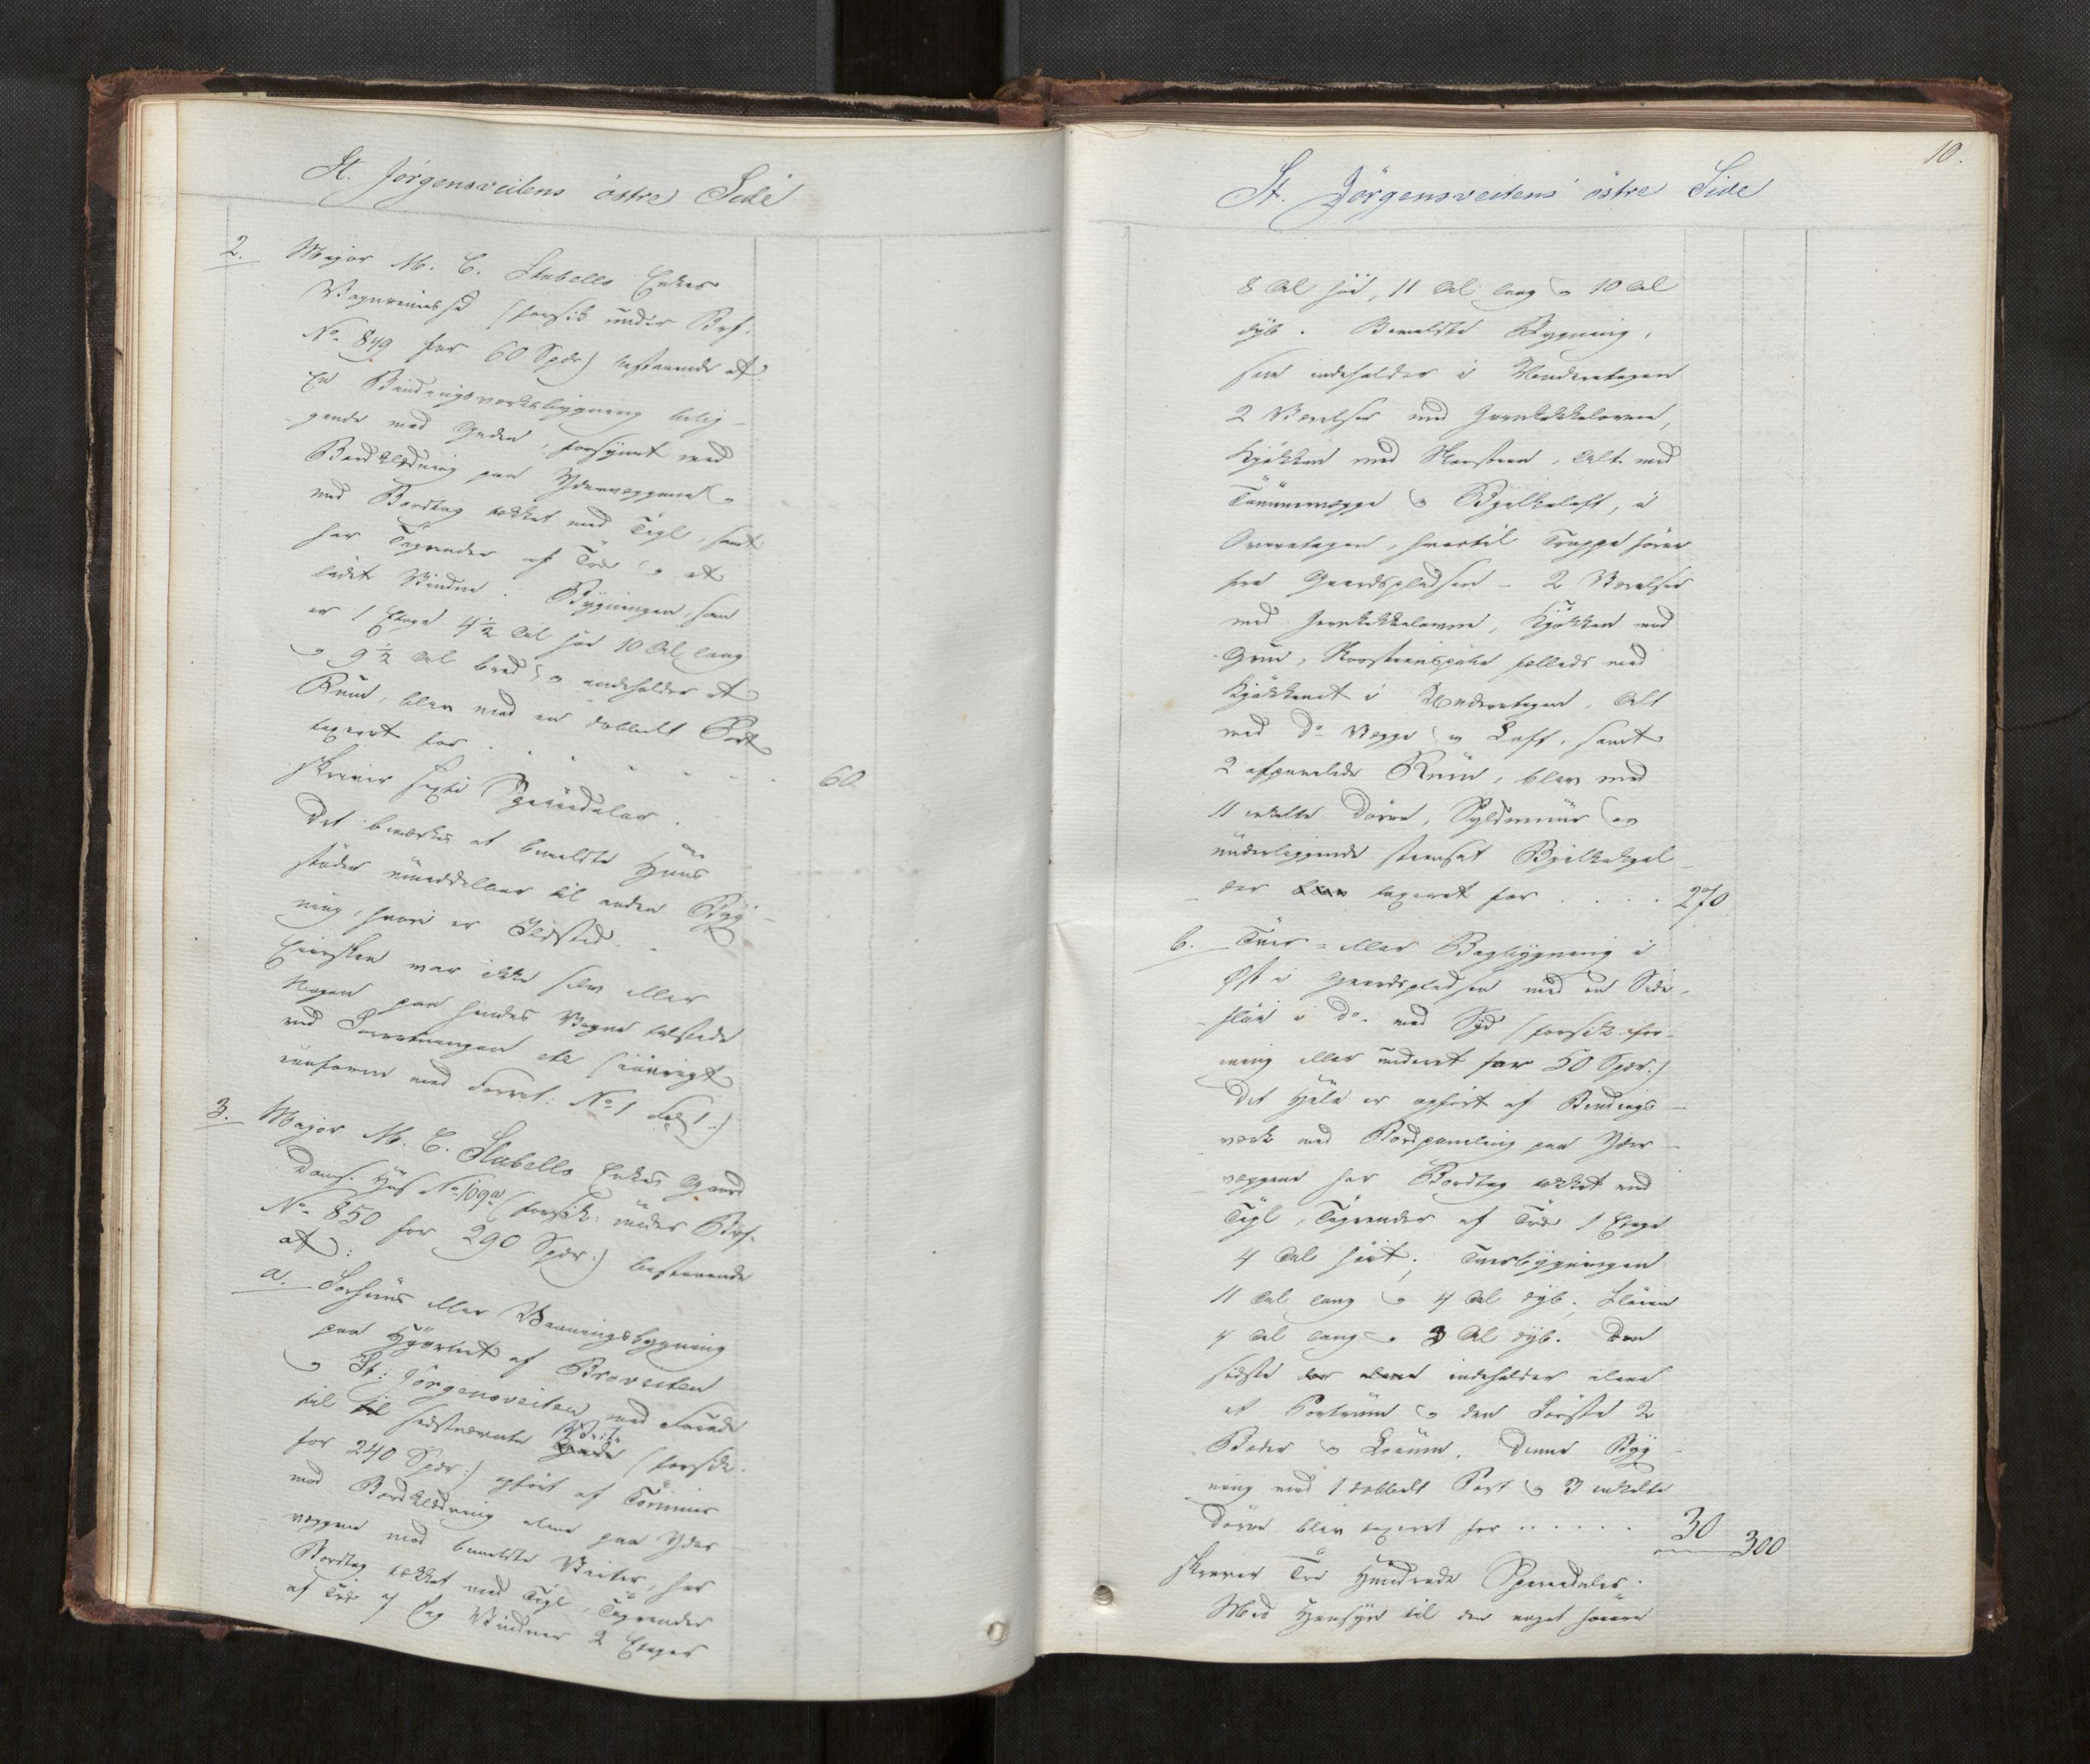 St. Jörgensveitens östre Side
2. Major M. C. Stabells Enkes
Vognremisse (forsik under Brf.
No 849 for 60 Spdr) bestaaende af
En Bindingsværksbygning belig-
gende mod Gaden, forsynet med
Bordklædning paa Ydervæggene og
med Bordtag tækket med Tegl, samt
har Tagrender af Træ og et
Vindue. Bygningen, som
er 1 Etage 4½ Al høi 10 Al lang
og 9½ Al bred, og indeholder et
Rum, blev med en dobbelt Port
taxeret for . . . . . 60
skriver sexti Speciedaler.
Det bemærkes at bemeldte Huus
støder umiddelbar til anden Byg-
ning, hvori er Ildsted.
Eiersken var ikke selv eller
Nogen paa hendes Vegne tilstede
ved Forretningen etc (iøvrigt
conform med Forret: No 1 Fol 1.)
3. Major M. C. Stabells Enkes Gaard
No 109a (forsik: under Brf.
No 850 for 290 Spdr:) bestaaende
af:
a. Forhuus eller Vaaningsbygning
paa Hjørnet af Broveiten
og St: Jörgensveiten med Facade
til til sidstnævnte Veite (forsik.
for 240 Spdr:) opført af Tømmer
med Bordklædning alene paa Yder-
væggene mod bemeldte Veiter, har
Bordtag tækket med Tegl, Tagrender
af Træ, 7 Fag Vinduer 2 Etager
10.
St. Jörgensveitens östre Side
8 Al høi, 11 Al lang og 10 Al
dyb. Bemeldte Bygning,
som indeholder i Underetagen
2 Værelser med Jernkakkelovne,
Kjøkken med Skorsteen, Alt med
Tømmervægge og Bjelkeloft, i
Overetagen, hvortil Trappe fører
fra Gaardspladsen - 2 Værelser
med Jernkakkelovne, Kjøkken med
Grue, Skorsteenspibe fælleds med
Kjøkkenet i Underetagen, Alt
med Do Vægge og Loft, samt
2 afpanelede Rum, blev med
11 enkelte Dørre, Syldmuur og
underliggende steensat Bjelkekjel-
der taxeret for . . . . 270
b. Tver- eller Bagbygning i
Øst i Gaardspladsen med en Side-
fløi i Do. mod Syd (forsik.
eller under for 50 Spdr:)
Det Hele er opført af Bindings-
værk med Bordpaneling paa Yder-
væggene har Bordtag tækket med
Tegl, Tagrender af Træ 1 Etage
4 Al høit; Tverbygningen
11 Al lang og 4 Al dyb. Fløien
4 Al lang og 3 Al dyb. Den
sidste indeholder alene
et Portrum og den Første 2
Boder og Locum. Denne Byg-
ning med 1 dobbelt Port og 3 enkelte
Dørre blev taxeret for . . . . . . 30 300
skriver Tre Hundrede Speciedaler.
Med Hensyn til den noget